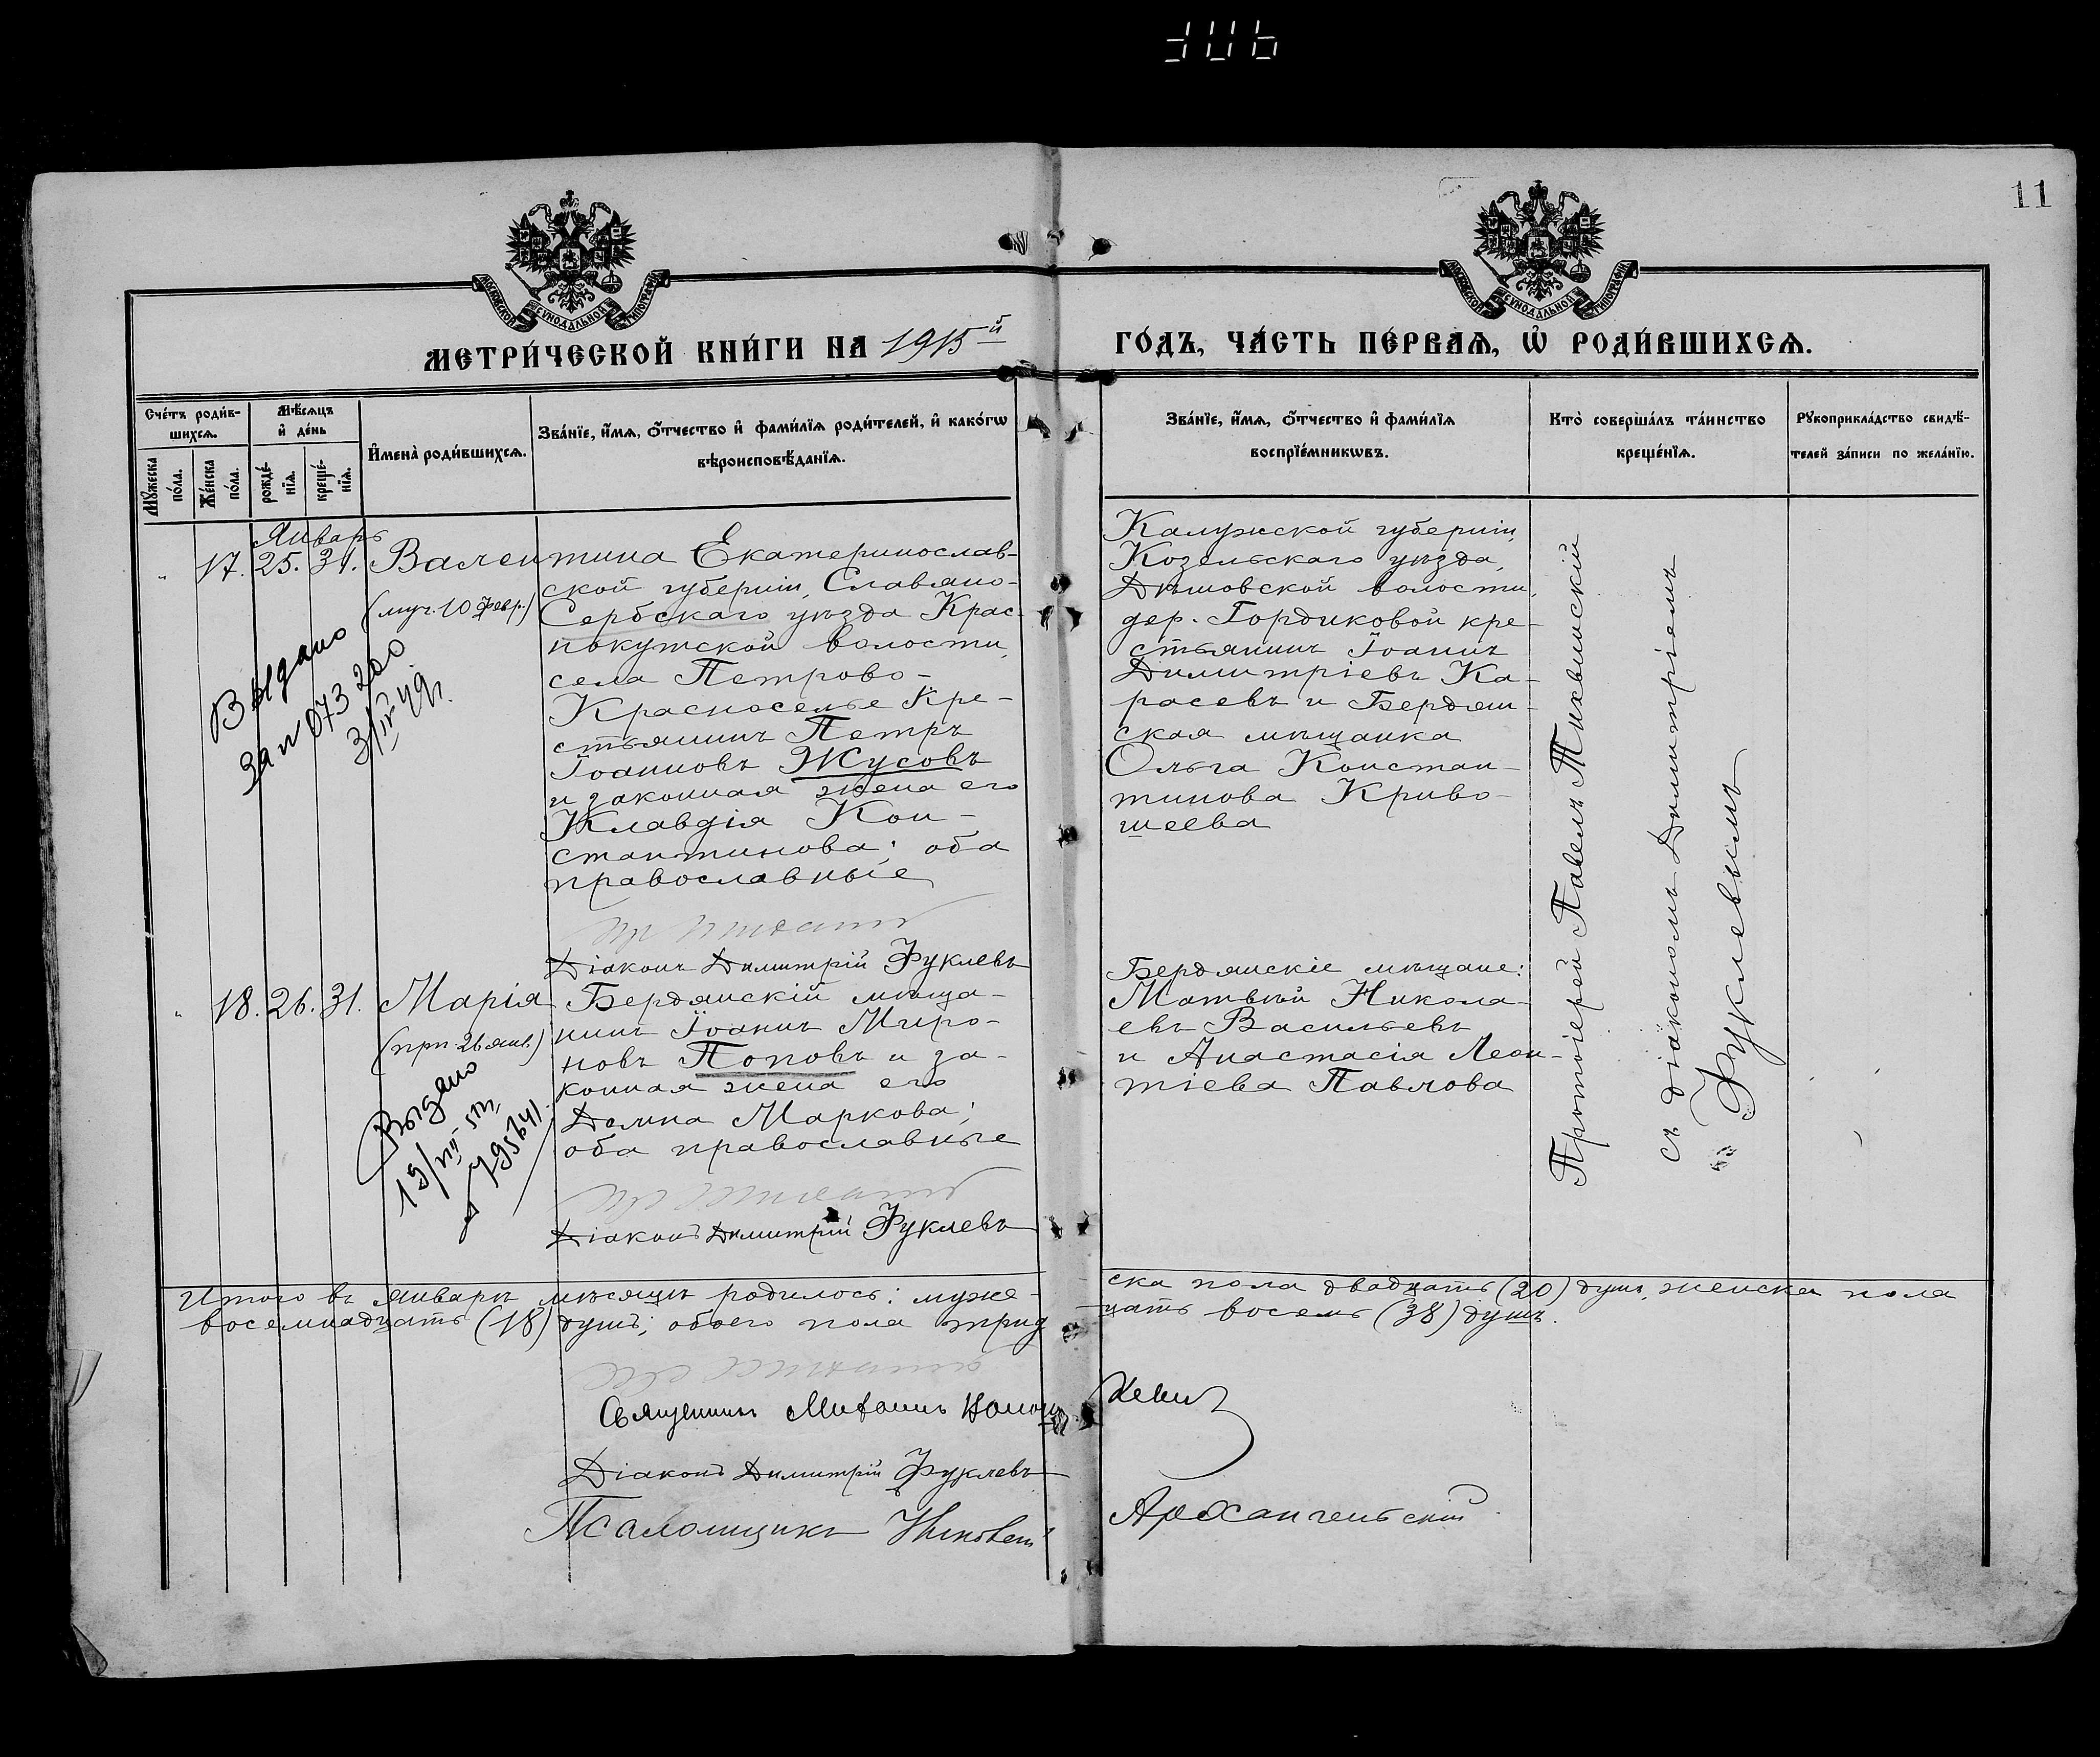 11
МОСКОВСКОЙ СѴНОДАЛЬНОЙ ТИПОГРАФІИ
МОСКОВСКОЙ СѴНОДАЛЬНОЙ ТИПОГРАФІИ
МЕТРИ́ЧЕСКОЙ КНИ́ГИ НА 1915й
ГО́ДЪ, ЧА́СТЬ ПЕ́РВАѦ, Ѽ РОДИ́ВШИХСѦ.
Сче́тъ роди́в-
шихсѧ.
Мѣ́сѧцъ
и҆ де́нь
Мꙋ́жеска
по́ла.
Же́нска
по́ла.
рожде́-
нїѧ.
креще́-
нїѧ.
И҆мена̀ роди́вшихсѧ.
Зва́нїе, и҆́мѧ, ѻ҆́тчество и҆ фами́лїѧ роди́телей, и҆ како́гѡ
вѣроисповѣ́данїѧ.
Зва́нїе, и҆́мѧ, ѻ҆́тчество и҆ фами́лїѧ
воспрїе́мникѡвъ.
Кто̀ соверша́лъ та́инство
креще́нїѧ.
Рꙋкоприкла́дство свидѣ́-
телей за́писи по жела́нїю.
Январь
17. 25. 31. Валентина
(муч. 10 февр.)
Выдано
за № 073200
3/IV 49г.
Екатеринослав-
ской губерніи, Славяно-
Сербскаго уѣзда Крас-
нокутской волости,
села Петрово-
Красноселье кре-
стьянинъ Петръ
Іоанновъ Жусовъ
и законная жена его
Клавдія Кон-
стантинова; оба
православные
Діаконъ Димитрій Фуклевъ
Калужской губерніи,
Козельскаго уѣзда,
Дѣшовской волости,
дер. Гордиковой кре-
стьянинъ Іоаннъ
Димитріевъ Ка-
расевъ и Бердян-
ская мѣщанка
Ольга Констан-
тинова Криво-
шеева
Протоіерей Павелъ Тихвинскій
съ діакономъ Димитріемъ
Фуклевымъ
18. 26. 31. Марія
(прп. 26 янв.)
Выдано
19/VII-51г.
№ 795641
Бердянскій мѣща-
нинъ Іоаннъ Миро-
новъ Поповъ и за-
конная жена его
Домна Маркова;
оба православные
Діаконъ Димитрій Фуклевъ
Бердянскіе мѣщане:
Матвѣй Никола-
евъ Васильевъ
и Анастасія Леон-
тіева Павлова
Итого въ январѣ мѣсяцѣ родилось: муже-
ска пола двадцать (20) душъ, женска пола
восемнадцать (18) душъ; обоего пола трид
цать восемь (38) душъ.
Священникъ Митрофанъ
Діаконъ Димитрій Фуклевъ
Псаломщикъ
Архангельскій